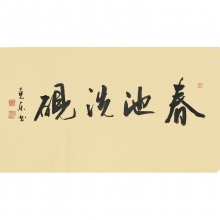 春池洗砚